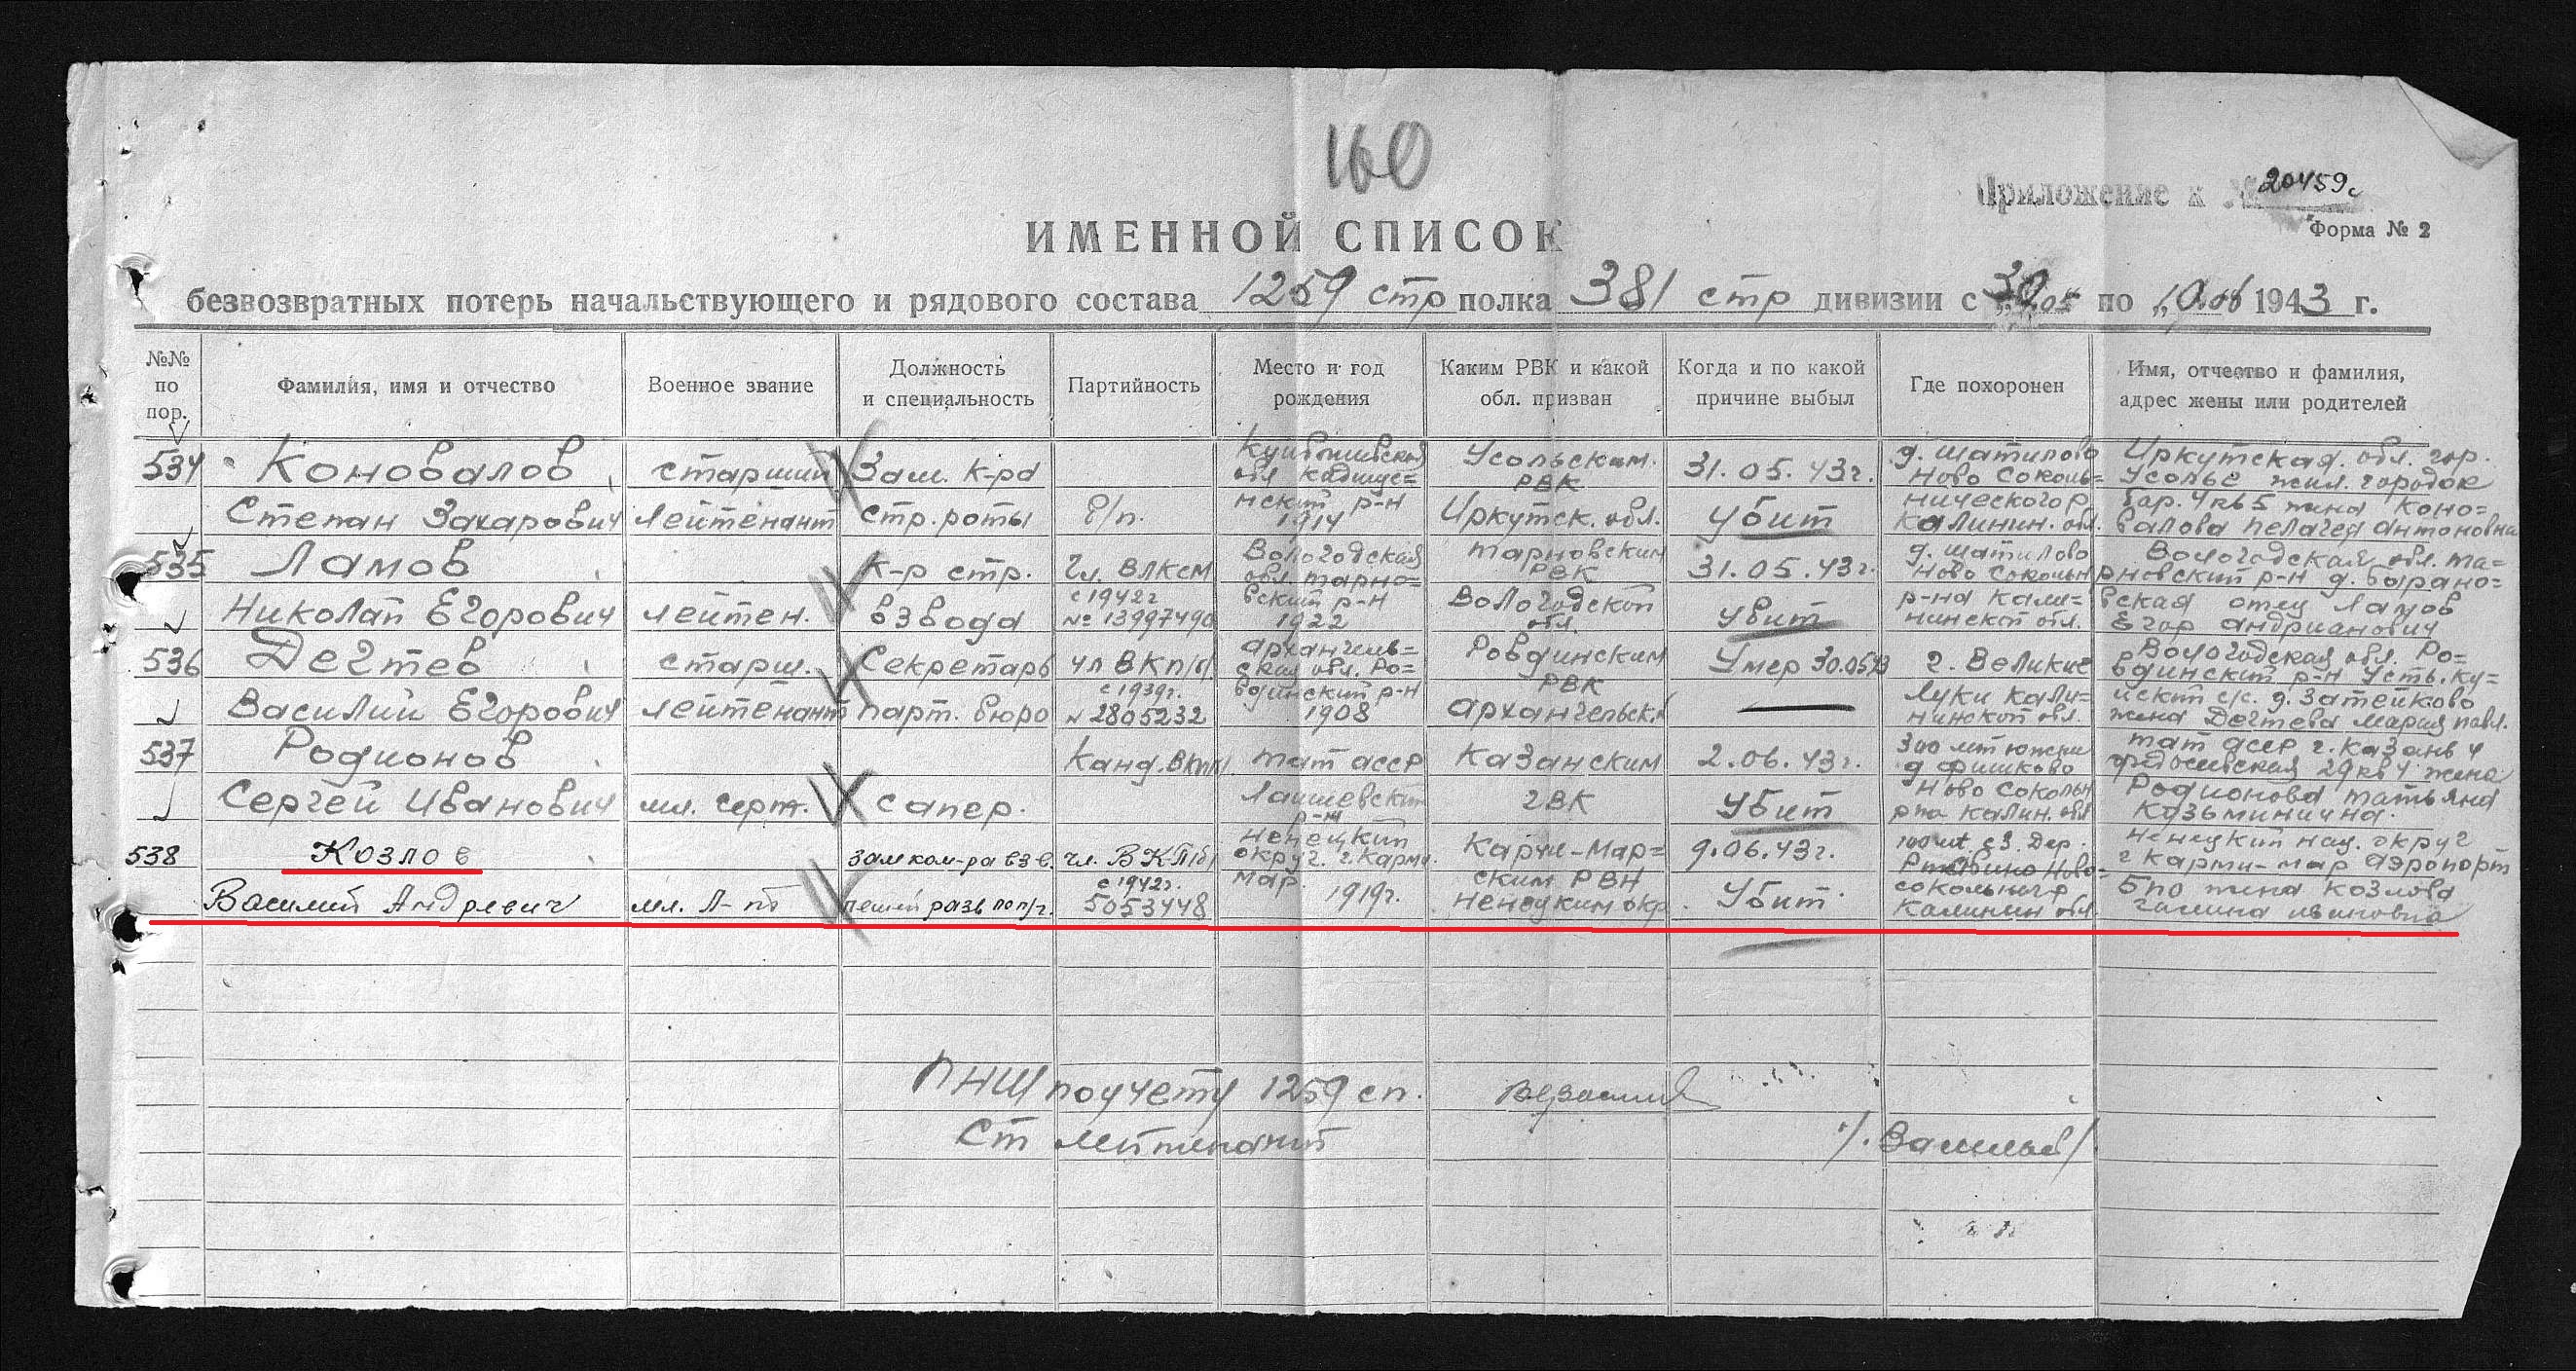 160
Приложение к № 20459с
Форма № 2
ИМЕННОЙ СПИСОК
безвозвратных потерь начальствующего и рядового состава 1259 стр полка 381 стр дивизии с 30.05 по 10.06 1943 г.
№№ по пор.
Фамилия, имя и отчество
Военное звание
Должность и специальность
Партийность
Место и год рождения
Каким РВК и какой обл. призван
Когда и по какой причине выбыл
Где похоронен
Имя, отчество и фамилия, адрес жены или родителей
534
Коновалов
Степан Захарович
старший
лейтенант
Зам. к-ра
стр. роты
б/п.
Куйбышевская
обл
нский р-н
1914
Усольским
РВК
Иркутск. обл.
31.05.43г.
Убит
д. Шатилово
Ново Соколь=
нического р
Калинин. обл.
Иркутская. обл. гор.
Усолье жил. городок
бар. 4 кв 5 жена Коно=
валова Пелагея Антоновна
535
Ламов
Николай Егорович
лейтен.
К-р стр.
взвода
Чл. ВЛКСМ
с 1942г
№ 13997490
Вологодская
обл. Тарно=
вский р-н
1922
Тарновским
РВК
Вологодской
обл.
31.05.43г.
Убит
д. Шатилово
Ново Сокольн
р-на Кали=
нинской обл.
Вологодская обл. Та=
рновский р-н д.
вская отец Ламов
Егор Андрианович
536
Дегтев
Василий Егорович
старш.
лейтенант
Секретарь
парт. бюро
чл ВКП/б/
с 1939г.
№ 2805232
Архангель=
ская обл. Ро=
вдинский р-н
1908
Ровдинским
РВК
Архангельск.
Умер 30.05.43
г. Великие
Луки Кали=
нинской обл.
Вологодская обл. Ро=
вдинский р-н Усть. Ку=
йский с/с. д. Затейково
жена Дегтева Мария Павл.
537
Родионов
Сергей Иванович
мл. серж.
сапер.
Канд. ВКП/б/
Тат АССР
Лаишевский
р-н
Казанским
ГВК
2.06.43г.
Убит
300 мт южн
д Фишково
Ново Сокольн
р на Калин. обл
Тат АССР г. Казань 4
29 кв 4 жена
Родионова Татьяна
Кузьминична.
538
Козлов
Василий Андреевич
мл. л-нт
зам ком-ра взв.
пешей разв
чл. ВКП/б/
с 1942г.
5053448
Ненецкий
округ. г. Карми
мар
1919г.
Карми-Мар=
ским РВК
Ненецким окр.
9.06.43г.
Убит
100 мт. с3. Дер.
Ново=
сокольнич р
Калинин обл.
Ненецкий нац. округ
г Карми-мар аэропорт
5 по жена Козлова
Галина Ивановна
ПНШ по учету 1259 сп.
Ст лейтенант
/Васильев/